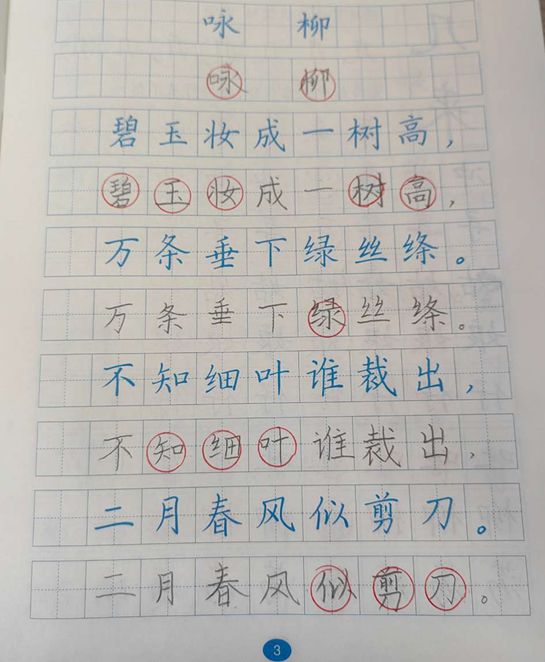 咏柳
咏柳
碧玉妆成一树高，
碧玉妆成一树高，
万条垂下绿丝绦。
万条垂下绿丝绦。
不知细叶谁裁出，
不知细叶谁裁出，
二月春风似剪刀。
二月春风似剪刀。
3